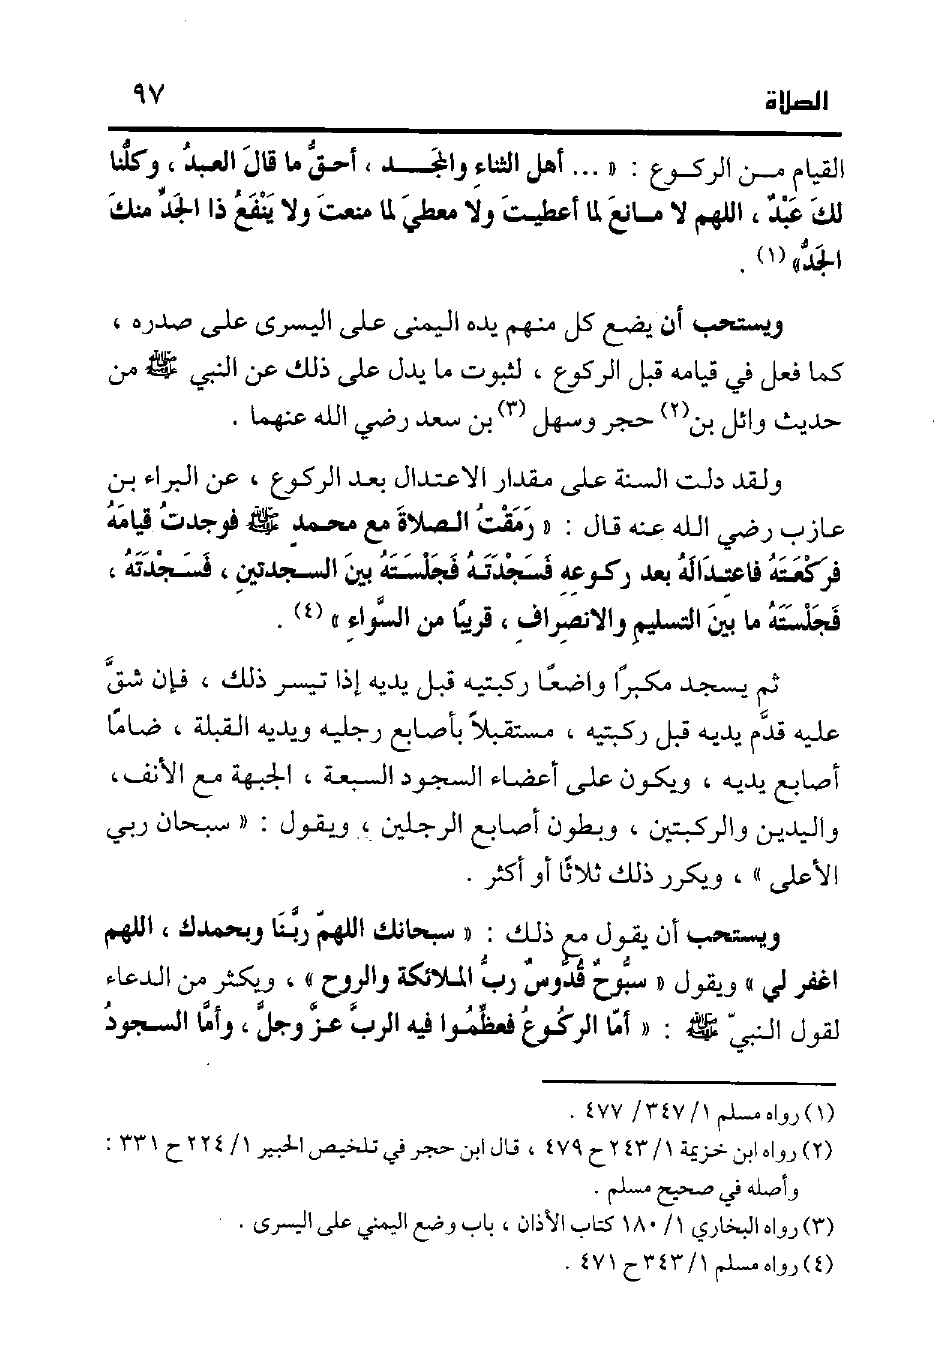 الصلاة ٩٧
القيام مـن الركـوع : « ... أهل الثناءِ والمجـد ، أحقُّ ما قالَ العبدُ ، وكلُّنا
لكَ عَبْدٌ ، اللهم لا مـانعَ لما أعطيـتَ ولا معطيَ لما منعتَ ولا يَنْفَعُ ذا الجَدِّ منكَ
الجَدُّ» (١) .
ويستحب أن يضع كل منهم يده اليمنى على اليسرى على صدره ،
كما فعل في قيامه قبل الركوع ، لثبوت ما يدل على ذلك عن النبي ﷺ من
حديث وائل بن(٢) حجر وسهل (٣)بن سعد رضي الله عنهما .
ولقد دلت السنة على مقدار الاعتدال بعد الركوع ، عن البراء بن
عازب رضي الله عنه قال : « رَمَقْتُ الصلاةَ مع محمدٍ ﷺ فوجدتُ قيامَهُ
فركْعَتَهُ فاعتِدَالَهُ بعد ركوعِهِ فَسَجْدَتَهُ فَجَلْسَتَهُ بينَ السجدتينِ ، فَسَجْدَتَهُ ،
فَجَلْسَتَهُ ما بينَ التسليمِ والانصِرافِ ، قريبًا من السَّواءِ » (٤) .
ثم يسجد مكبرًا واضعًا ركبتيه قبل يديه إذا تيسر ذلك ، فإن شقَّ
عليه قدَّم يديه قبل ركبتيه ، مستقبلاً بأصابع رجليه ويديه القبلة ، ضامًا
أصابع يديه ، ويكون على أعضاء السجود السبعة ، الجبهة مع الأنف،
واليدين والركبتين ، وبطون أصابع الرجلين ، ويقول : « سبحان ربي
الأعلى » ، ويكرر ذلك ثلاثًا أو أكثر .
ويستحب أن يقول مع ذلك : « سبحانك اللهمّ ربَّنَا وبحمدك ، اللهم
اغفر لي » ويقول « سبُّوحٌ قُدُّوسٌ ربُّ الملائكة والروح » ، ويكثر من الدعاء
لقول النبيّ ﷺ : « أمّا الركُوعُ فعظِّمُوا فيه الربَّ عزَّ وجلَّ ، وأمَّا السجودُ
(١) رواه مسلم ١/ ٣٤٧/ ٤٧٧ .
(٢) رواه ابن خزيمة ١/ ٢٤٣ح ٤٧٩ ، قال ابن حجر في تلخيص الحبير ١/ ٢٢٤ح ٣٣١ :
وأصله في صحيح مسلم .
(٣) رواه البخاري ١/ ١٨٠ كتاب الأذان ، باب وضع اليمني على اليسرى .
(٤) رواه مسلم ١/ ٣٤٣ح ٤٧١ .